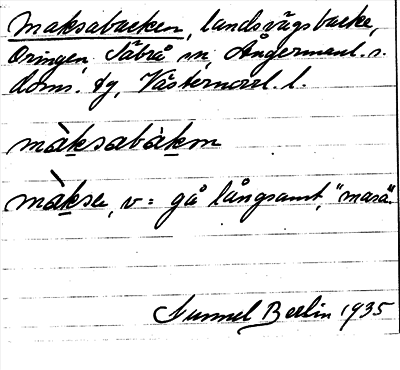 Maksabacken, landsvägsbacke,
Öringen, Säbrå sn, Ångermanl. s.
doms. dg, Västernorrl. l.
màksabàkɒn
màksa, v = gå långsamt, "masa".
Gunnel Berlin 1935